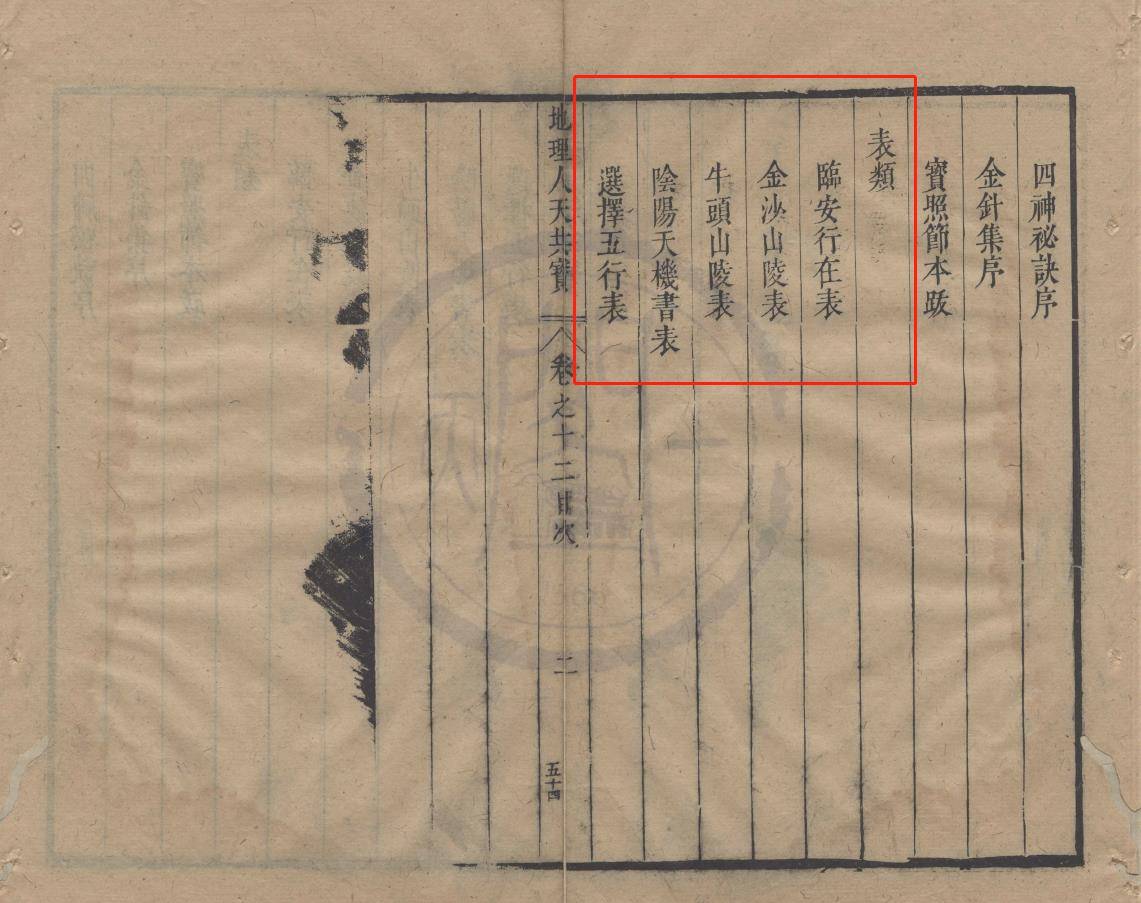 四神祕訣序
金針集序
寳照節本跋
表類
臨安行在表
金沙山陵表
牛頭山陵表
陰陽天機書表
選擇五行表
地理人天共寳
卷之十二目次
二
五十四